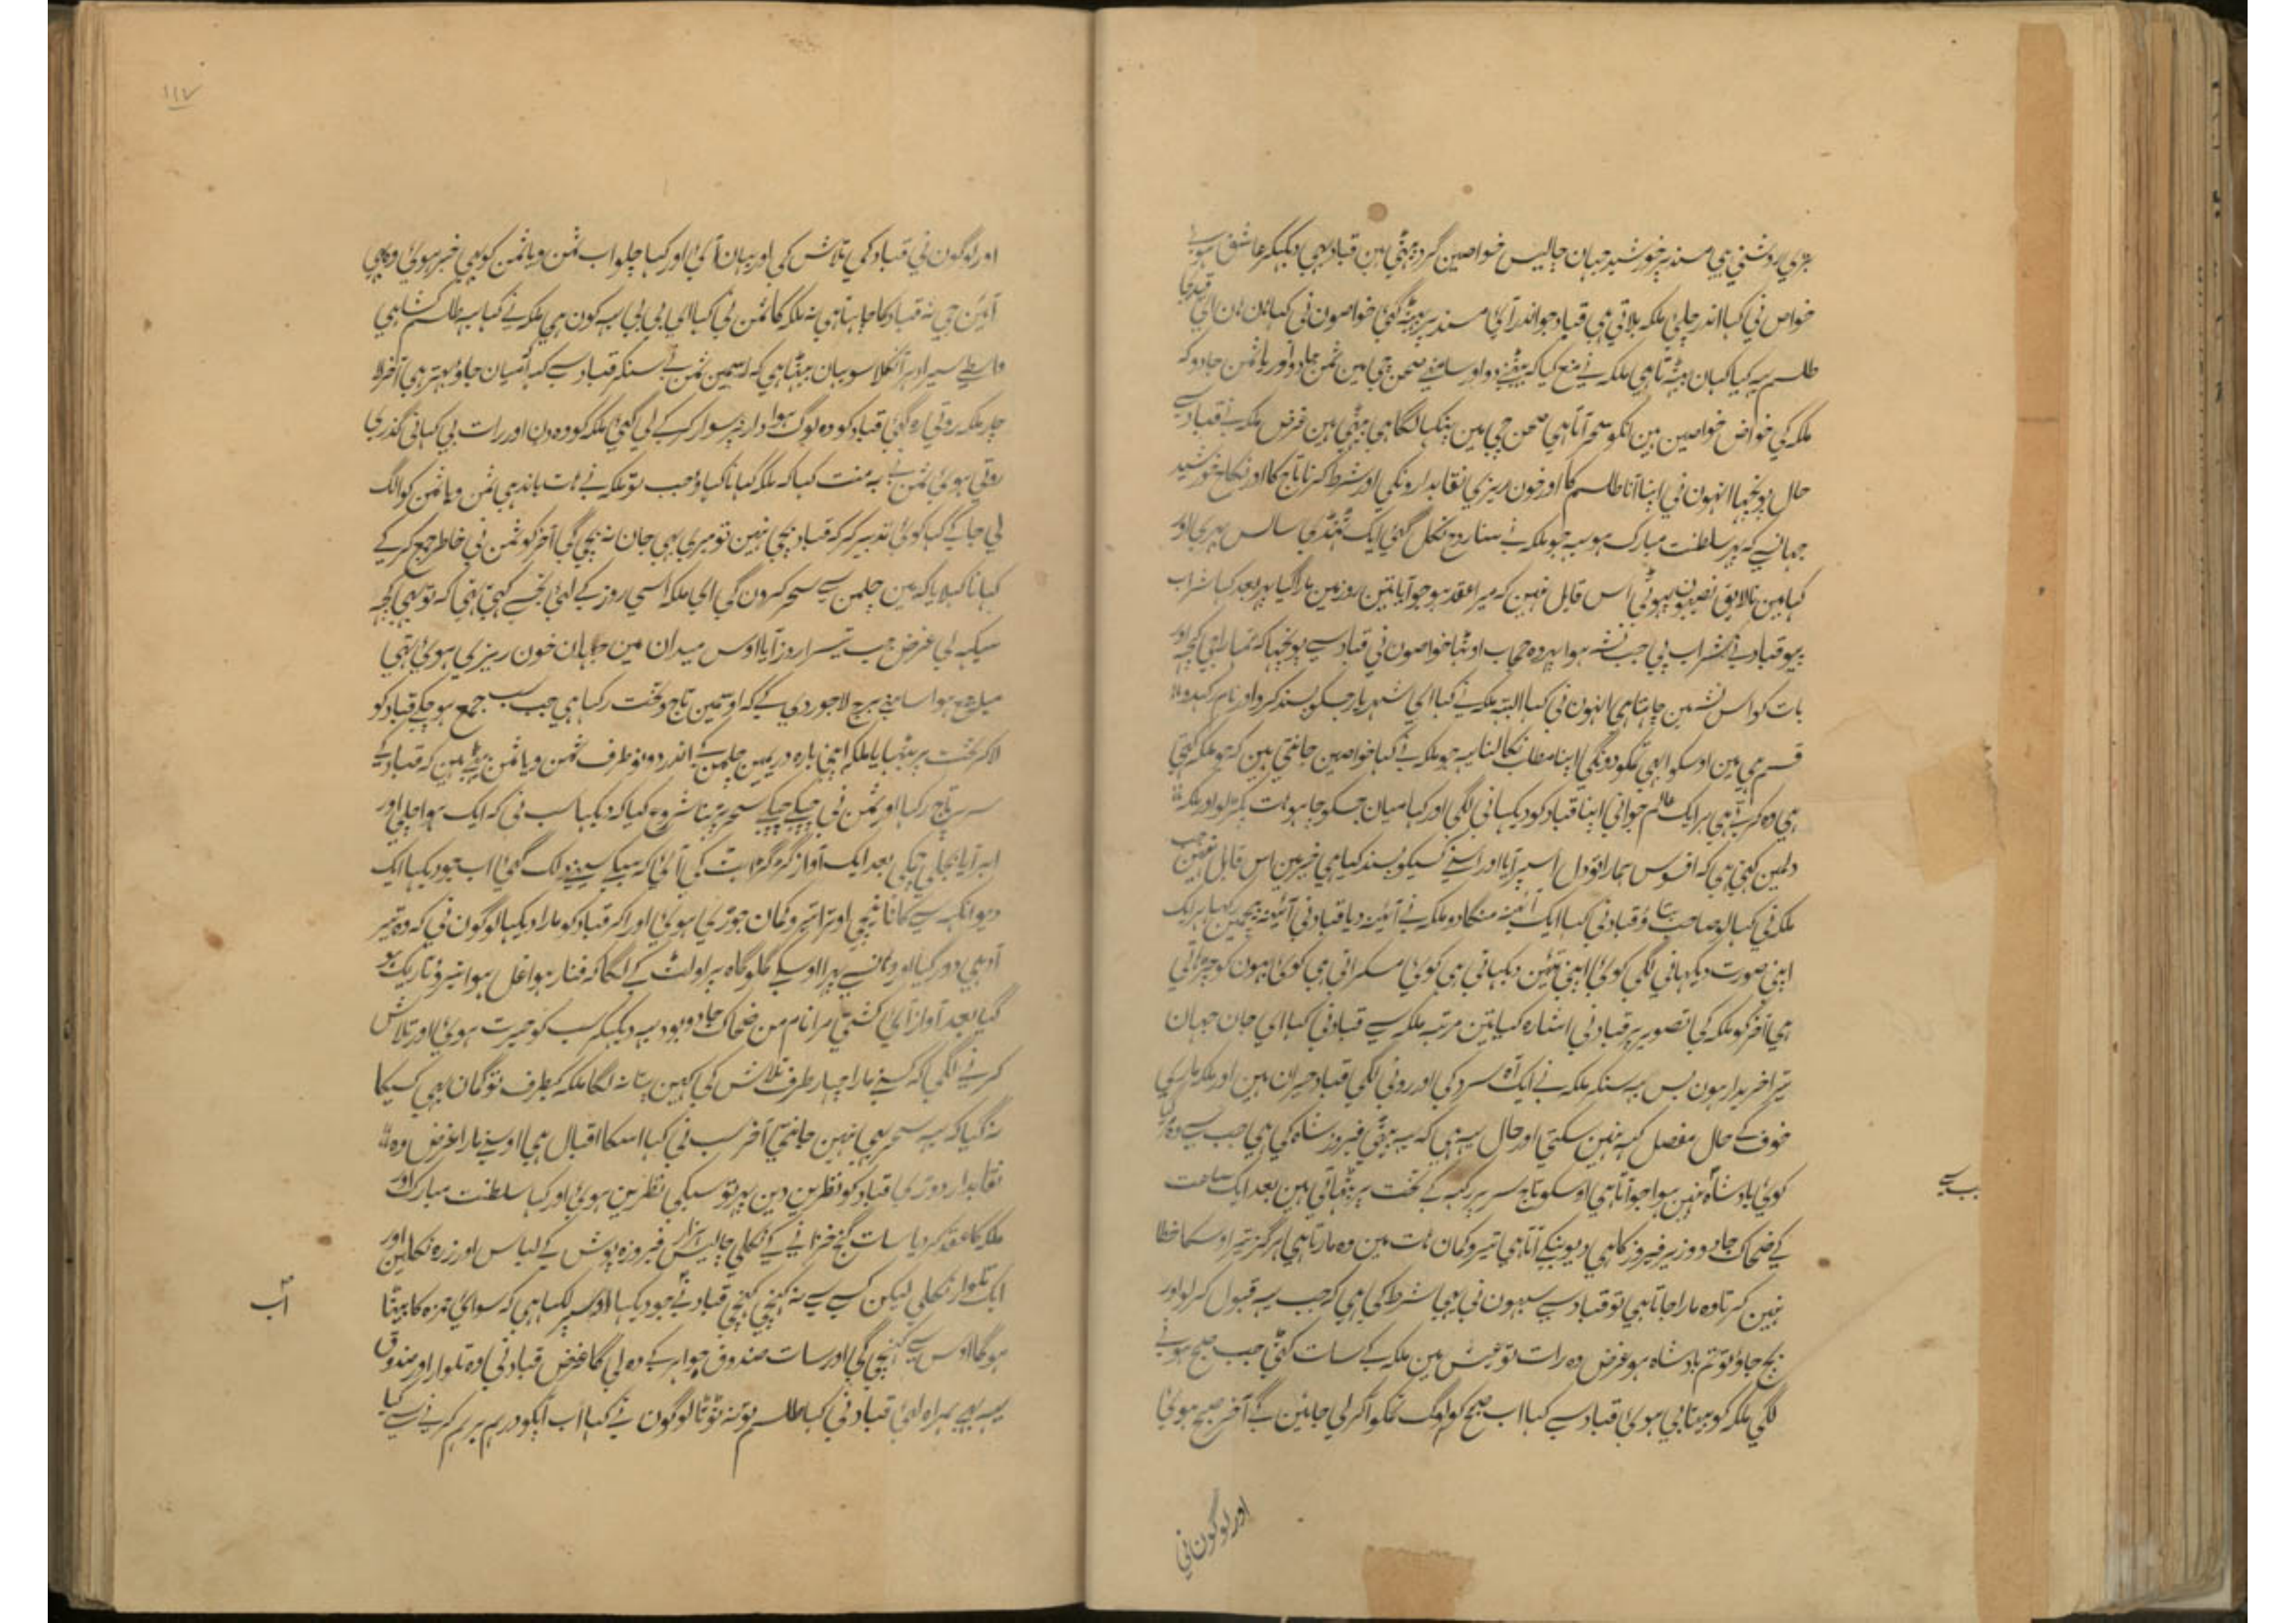 بڑی روشنی ہی مسند پر خورشید جہان چالیس خواصین گرد بیٹھی ہین قباد بہی دیکہکر عاشق ہوے
خواص نی کہا اندر چلی ملکہ بلاتی ہی قباد جو اندر آی مسند پر بیٹہ گئی خواصون نی کہا ہان ہان ای
طلسم یہ کیا کہان بیٹہتا ہی ملکہ نے منع کیا کہ بیٹہنے دو اور سامنے صحن چی مین ثمن جادو اور یاثمن جادو کہ
ملکہ کی خواص خواصین ہین انکو سحر آتا ہی صحن چی مین پنکہا لگا ہی بیٹھی ہین غرض ملکہ نے قباد سے
حال پونچہا انہون نی اپنا آنا طلسم کا اور خون ریزی نقابدارونکی اور شرط کرنا تاج کا اور نکاح خورشید
جہان سے کہ پہر سلطنت مبارک ہو یہ جو ملکہ نے سنا روح نکل گئی ایک ٹہنڈی سانس بہری اور
کہا مین نالایق نصیبون ہوئی اس قابل نہین کہ میرا عقد ہو جو آیا تین روز مین مارا گیا پہر بعد کہا شراب
پیو قباد نے شراب پی جب نشہ ہوا پردہ حجاب اوٹہا خواصون نی قباد سے پونچہا کہ تمہارا جی کچہ اور
بات کو اس نشہ مین چاہتا ہی انہون نی کہا البتہ ملکہ نے کہا ای شہریار جسکو پسند کرو اور نام کہدو
قسم ہی مین اوسکو ابہی تمکو دونگی اپنا مطلب نکالنا یہ جو ملکہ نے کہا خواصین جانتی ہین کہ جو ملکہ کہتی
ہی وہ کرتی ہی ہر ایک عالم جوانی اپنا قباد کو دیکہانی لگی اور کہا میان جسکو چاہو ہات پکڑ لو اور ملکہ
دلمین کہتی ہی کہ افسوس ہمارا تو دل اسپر آیا اور اسنے کسیکو پسند کیا ہی خیر مین اس قابل نہین جب
ملکہ نی کہا لو صاحب بتاؤ قباد نی کہا ایک آئینہ منگا دو ملکہ نے آئینہ دیا قباد نی آئینہ بیچمین رکہا ہر ایک
اپنی صورت دیکہانی لگی کوئی اپنی تئین دیکہاتی ہی کوئی مسکراتی ہی کوئی ہون کو چڑہاتی
ہی آخر کو ملکہ کی تصویر پر قباد نی اشارہ کیا تین مرتبہ ملکہ سے قباد نی کہا ای جان جہان
تیرا خریدار ہون بس یہ سنکر ملکہ نے ایک آہ سرد کی اور رونی لگی قباد حیران ہین اور ملکہ مارے
خوف کے حال مفصل کہہ نہین سکتی اور حال یہ ہی کہ یہ بیٹی فیروز شاہ کی ہی جب سے وہ مر گیا
کوئی بادشاہ نہین ہوا جو آتا ہی اوسکو تاج سر پر رکہہ کے تخت پر بٹہاتی ہین بعد ایک ساعت
کے ضحاک جادو وزیر فیروز کا ہی دیو بنکے آتا ہی تیر و کمان ہات مین وہ مارتا ہی ہرگز تیر اوسکا خطا
نہین کرتا وہ مارا جاتا ہی تو قباد سے سبہون نی یہی شرط کی ہی کہ جب یہ قبول کر لو اور
بچ جاؤ تو تم بادشاہ ہو غرض وہ رات تو عیش مین ملکہ کے سات کٹی جب صبح ہونے
لگی ملکہ کو بیتابی ہوئی قباد سے کہا اب صبح کو لوگ تمکو آکر لی جائین گے آخر صبح ہوئی
اور لوگون نی
۱۱۷
اور لوگون نی قباد کی تلاش کی اور یہان آئی اور کہا چلو اب ثمن و یاثمن کو بہی خبر ہوئی وہ بہی
آئین جی نہ قباد کا چاہتا ہی نہ ملکہ کا ثمن نی کہا ای بی بی یہ کون ہی ملکہ نے کہا یہ طلسم کشا ہی
واسطے سیر ادہر آنکلا سو یہان بیٹہا ہی کہ اسمین ثمن نے سنکر قباد سے کہا میان جاؤ بہتر ہی آخر لا
چار ملکہ روتی رہ گئی قباد کو وہ لوگ ہوادار پر سوار کر کے لی گئی ملکہ کو وہ دن اور رات بی کہانی گذری
روتی ہوئی ثمن نے بہ منت کہا کہ ملکہ کہانا کہاؤ جب تو ملکہ نے ہات باندہی ثمن و یاثمن کو الگ
لی جا کے کہا کوئی تدبیر کر کہ قباد بچی نہین تو میری بہی جان نہ بچی گی آخر کو ثمن نی خاطر جمع کر کے
کہانا کہلایا کہ مین چلمن سے سحر کرون گی ای ملکہ اسی روز کے لئی تجسے کہتی تہی کہ تو بہی کچہ
سیکہہ لی غرض جب تیسرا روز آیا اوس میدان مین جہان خون ریزی ہوئی تہی
میلہ جمع ہوا سامنے برج لاجوردی کے کہ اوسمین تاج و تخت رکہا ہی جب سب جمع ہو چکے قباد کو
لاکر تخت پر بٹہایا ملکہ اپنی بارہ دریمین چلمن کے اندر دونو طرف ثمن و یاثمن بیٹہے ہین کہ قباد کے
سر پر تاج رکہا اور ثمن نی چپکے چپکے سحر پڑہنا شروع کیا کہ دیکہا سب نی کہ ایک ہوا چلی اور
ابر آیا بجلی چمکی بعد ایک آواز گڑگڑاہٹ کی آئی کہ سبکے سینے دہل گئی اب جو دیکہا ایک
دیو انکہہ سے کانا نیچی اوترا تیر و کمان جوڑی ہوئی اور اکر قباد کو مارا دیکہا لوگون نی کہ وہ تیر
آدہی دور گیا اور وہانسے پہرا اوسکے گلوگاہ پر اولٹ کے لگا کہ فنار ہوا غل ہوا تیرہ و تاریک ہو
گیا بعد آواز آئی کشتی مرا نام من ضحاک جادو بود یہ دیکہکر سب کو حیرت ہوئی اور تلاش
کرنے لگی کہ کسنے مارا چہار طرف تلاش کی کہین پتا نہ لگا ملکہ کیطرف تو گمان بہی کسیکا
نہ گیا کہ یہ سحر بہی نہین جانتی آخر سب نی کہا اسکا اقبال ہی اوسنے مارا غرض وہ
نقابدار دوڑی قباد کو نظرین دین پہر تو سبکی نظرین ہوئی اور کہا سلطنت مبارک اور
ملکہ کا عقد کر دیا سات گنج خزانے کے نکلی چالیس ہزار فیروزہ پوش کے لباس اور زرہ نکلین اور
ایک تلوار نکلی لیکن کسے سے نہ کہنچی کہنچی قباد نے جو دیکہا اوسپر لکہا ہی کہ سوای حمزہ کا بیٹا
ہو گا اوس سے کہنچی گی اور سات صندوق جواہر کے وہ لی گا غرض قباد نی وہ تلوار اور صندوق
یہ بہی ہمراہ لئی قباد نی کہا طلسم تو نہ ٹوٹا لوگون نے کہا اب آپکو درہم برہم کرنے سے کیا
اب